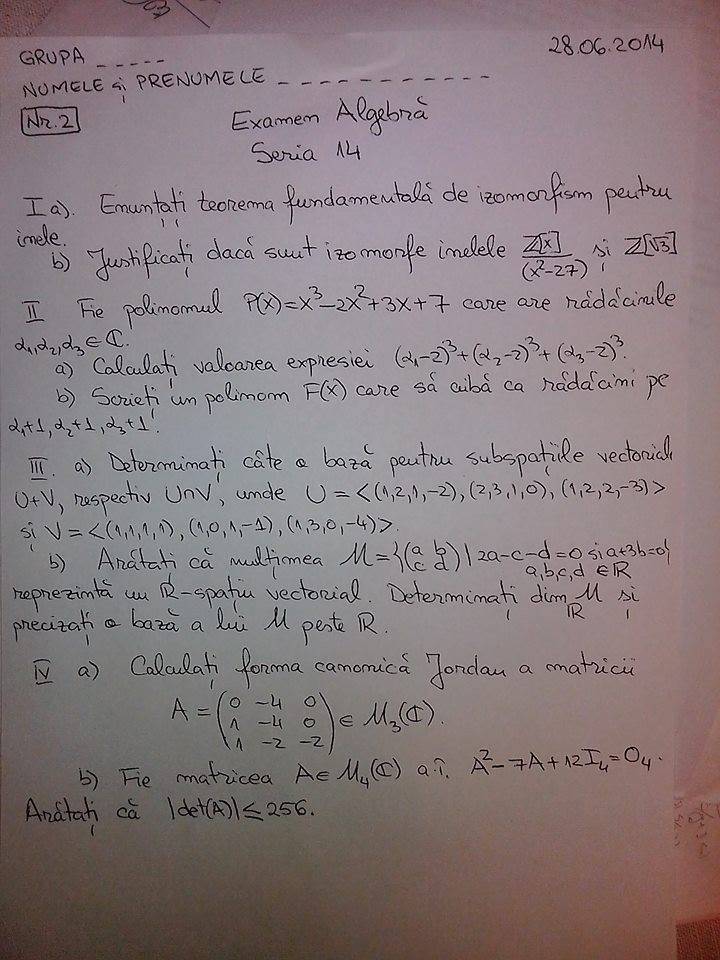 GRUPA _ _ _ _ _ 28.06.2014
NUMELE și PRENUMELE _ _ _ _ _ _ _ _ _ _ _ _
Nr. 2
Examen Algebră
Seria 14
I a). Enunțați teorema fundamentală de izomorfism pentru
inele.
b) Justificați dacă sunt izomorfe inelele Z[x]/(x²-27) și Z[√3]
II Fie polinomul P(X)=X³-2X²+3X+7 care are rădăcinile
α₁,α₂,α₃∈ℂ.
a) Calculați valoarea expresiei (α₁-2)³+(α₂-2)³+(α₃-2)³.
b) Scrieți un polinom F(X) care să aibă ca rădăcini pe
α₁+1, α₂+1, α₃+1.
III. a) Determinați câte o bază pentru subspațiile vectoriale
U+V, respectiv U∩V, unde U=<(1,2,1,-2),(2,3,1,0),(1,2,2,-3)>
și V=<(1,1,1,1),(1,0,1,-1),(1,3,0,-4)>.
b) Arătați că mulțimea M={(a b
c d) | 2a-c-d=0 și a+3b=0}
a,b,c,d ∈ℝ
reprezintă un ℝ-spațiu vectorial. Determinați dim_ℝ M și
precizați o bază a lui M peste ℝ.
IV a) Calculați forma canonică Jordan a matricii
A = (0 -4 0
1 -4 0
1 -2 -2) ∈ M₃(ℂ).
b) Fie matricea A∈M₄(ℂ) a.î. A²-7A+12I₄=O₄.
Arătați că |det(A)|≤256.